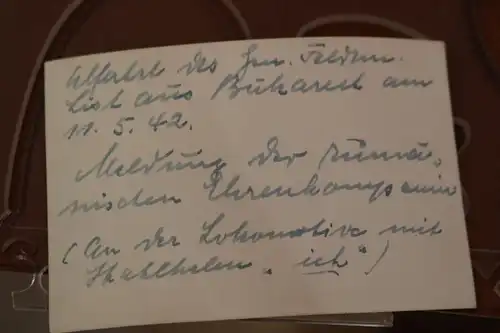 Abfahrt des Gen. Feldm.
List aus Bukarest am
11. 5. 42.
Meldung der rumä-
nischen Ehrenkompanie
(An der Lokomotive mit
Stahlhelm "ich")